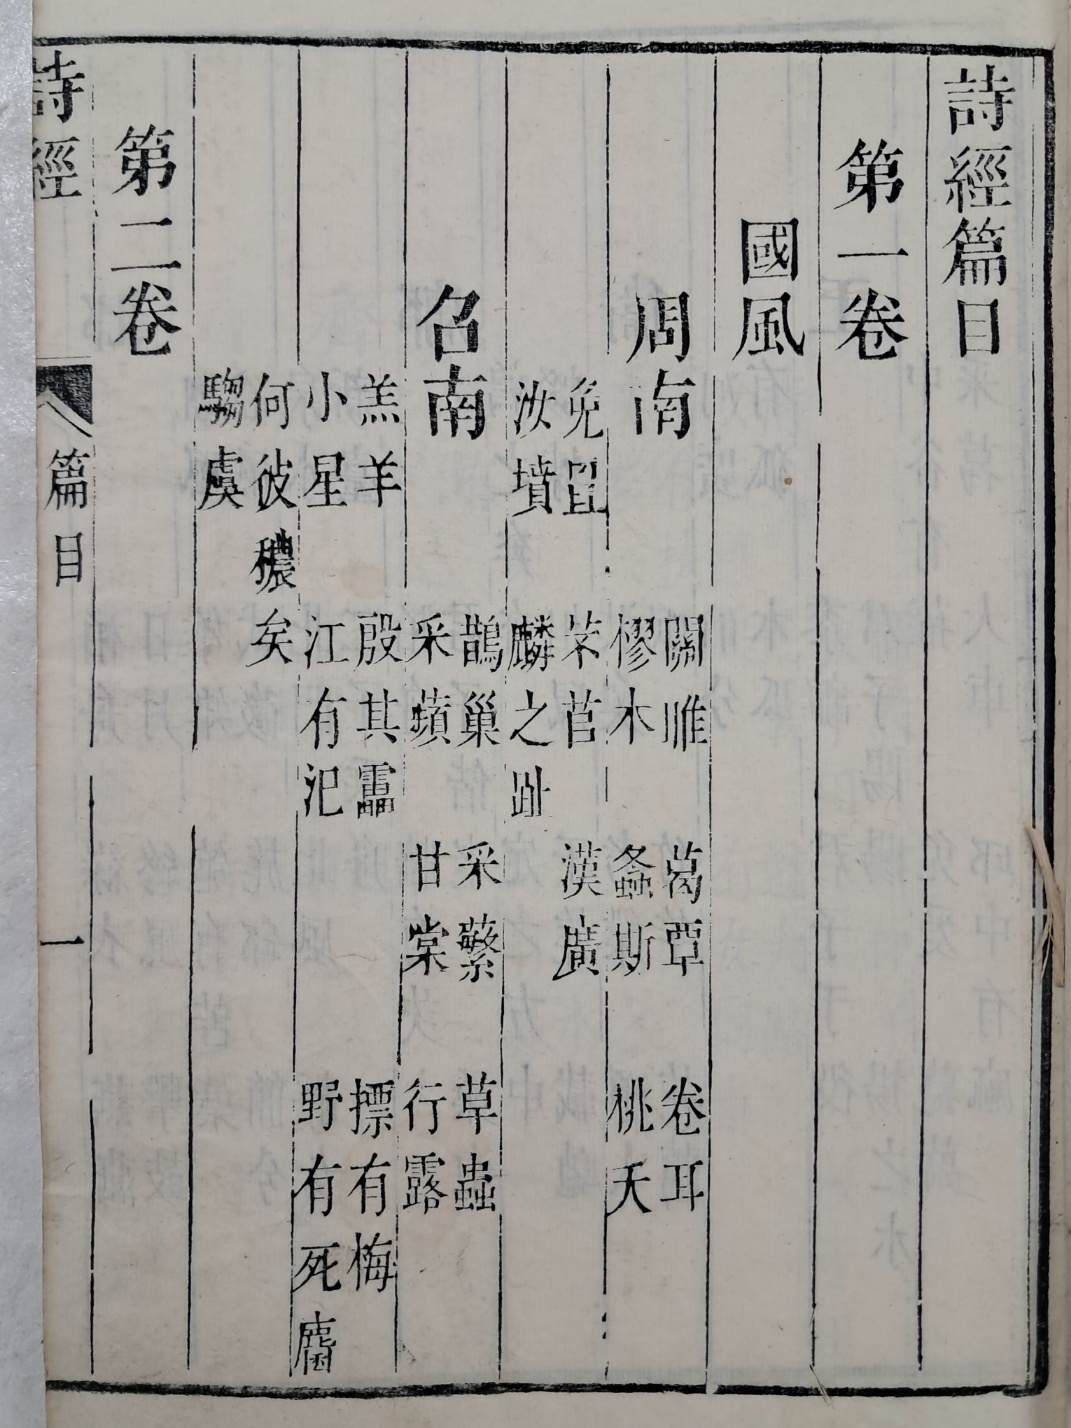 詩經篇目
第一卷
國風
周南
關雎 葛覃 卷耳
樛木 螽斯 桃夭
兔罝 芣苢 漢廣
汝墳 麟之趾
召南
鵲巢 采蘩 草蟲
采蘋 甘棠 行露
羔羊 殷其靁 摽有梅
小星 江有汜 野有死麕
何彼穠矣
騶虞
第二卷
詩經 篇目 一